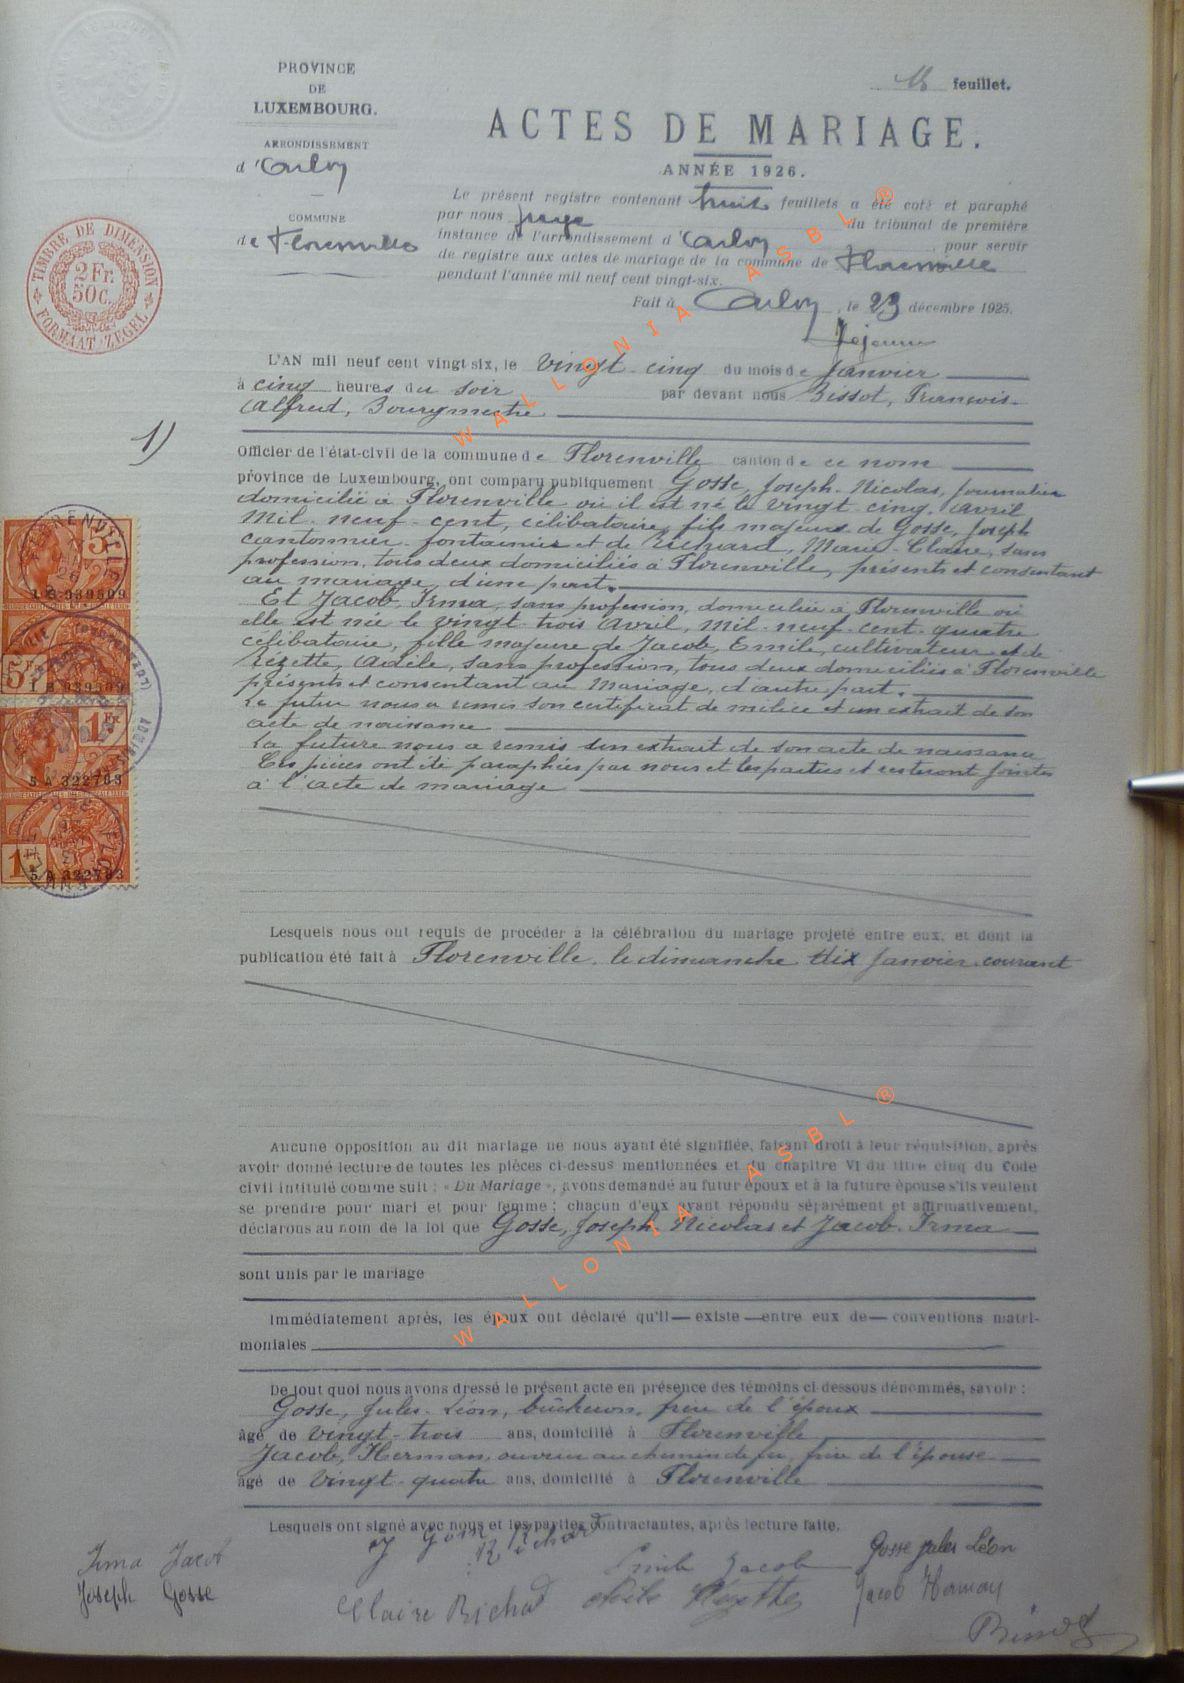 PROVINCE
DE
LUXEMBOURG.
ARRONDISSEMENT
d'Arlon
COMMUNE
de Florenville
feuillet.
ACTES DE MARIAGE.
ANNÉE 1926.
Le présent registre contenant huit feuillets a été coté et paraphé
par nous juge du tribunal de première
instance de l'arrondissement d'Arlon, pour servir
de registre aux actes de mariage de la commune de Florenville
pendant l'année mil neuf cent vingt-six.
Fait à Arlon, le 23 décembre 1925.
Lejeune
TIMBRE DE DIMENSION
2 Fr.
50 C.
FORMAAT ZEGEL
L'AN mil neuf cent vingt-six, le vingt-cinq du mois de Janvier
à cinq heures du soir par devant nous Bissot, François-
Alfred, Bourgmestre
1)
Officier de l'état-civil de la commune de Florenville canton de ce nom
province de Luxembourg, ont comparu publiquement Gosse, Joseph-Nicolas, journalier
domicilié à Florenville où il est né le vingt-cinq avril
Mil-neuf-cent, célibataire, fils majeur de Gosse, Joseph
cantonnier-fontainier et de Richard, Marie-Claire, sans
profession, tous deux domiciliés à Florenville, présents et consentant
au mariage, d'une part.
Et Jacob, Irma, sans profession, domiciliée à Florenville où
elle est née le vingt-trois avril, mil-neuf-cent-quatre
célibataire, fille majeure de Jacob, Emile, cultivateur et de
Rezette, Adèle, sans profession, tous deux domiciliés à Florenville
présents et consentant au Mariage, d'autre part.
Le futur nous a remis son certificat de milice et un extrait de son
acte de naissance
La future nous a remis un extrait de son acte de naissance
Ces pièces ont été paraphées par nous et les parties et resteront jointes
à l'acte de mariage
5 Fr
1 B 939509
5 Fr
1 B 939509
1 Fr
5 A 322763
1 Fr
5 A 322763
Lesquels nous ont requis de procéder à la célébration du mariage projeté entre eux, et dont la
publication été fait à Florenville, le dimanche dix Janvier courant
Aucune opposition au dit mariage ne nous ayant été signifiée, faisant droit à leur réquisition, après
avoir donné lecture de toutes les pièces ci-dessus mentionnées et du chapitre VI du titre cinq du Code
civil intitulé comme suit : « Du Mariage », avons demandé au futur époux et à la future épouse s'ils veulent
se prendre pour mari et pour femme ; chacun d'eux ayant répondu séparément et affirmativement,
déclarons au nom de la loi que Gosse, Joseph-Nicolas et Jacob Irma
sont unis par le mariage
Immédiatement après, les époux ont déclaré qu'il — existe — entre eux de — conventions matri-
moniales
De tout quoi nous avons dressé le présent acte en présence des témoins ci-dessous dénommés, savoir :
Gosse, Jules-Léon, bûcheron, frère de l'époux
âgé de vingt-trois ans, domicilié à Florenville
Jacob, Herman, ouvrier au chemin de fer, frère de l'épouse
âgé de vingt-quatre ans, domicilié à Florenville
Lesquels ont signé avec nous et les parties contractantes, après lecture faite.
Irma Jacob
Joseph Gosse
Claire Richard
Emile Jacob
Adèle Rezette
Gosse Jules Léon
Jacob Herman
Bissot
WALLONIA ASBL ®
WALLONIA ASBL ®